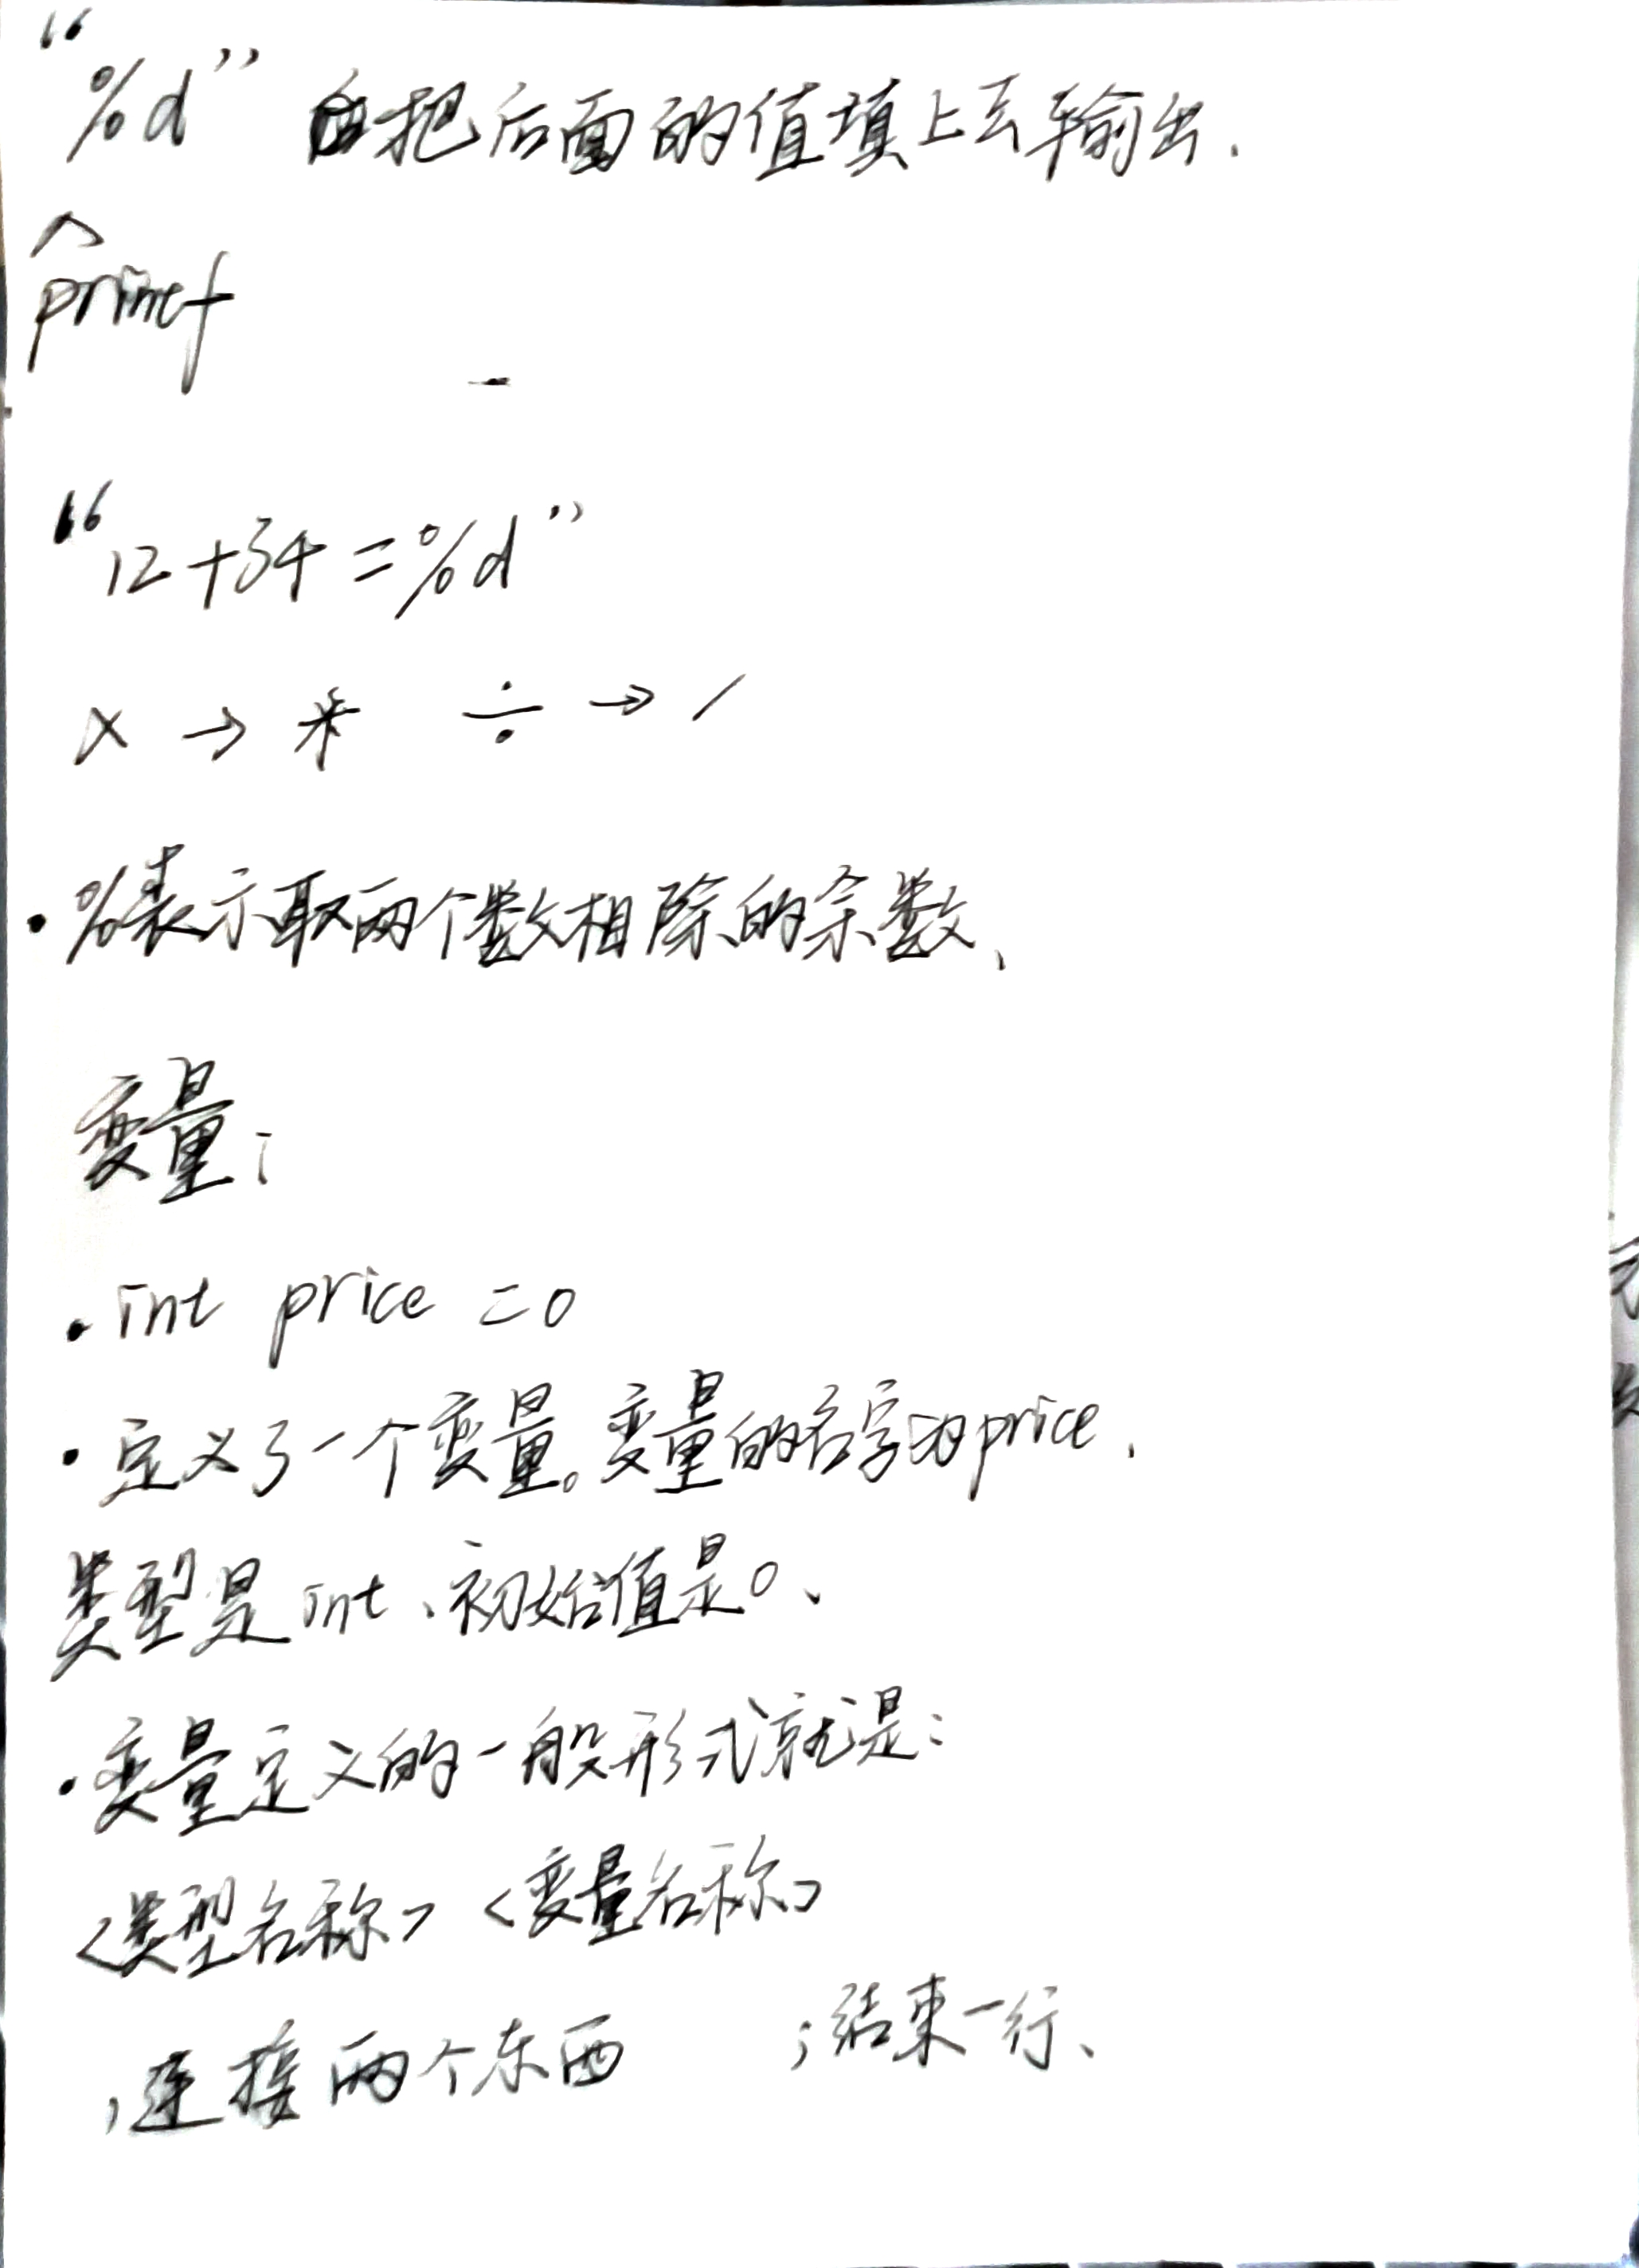 “%d” 把后面的值填上去输出.
printf
“12+34=%d”
× → * ÷ → /
·%表示取两个数相除的余数、
变量:
·int price =0
·定义了一个变量。变量的名字为price.
类型是int、初始值是0、
·变量定义的一般形式就是:
<类型名称> <变量名称>
,连接两个东西 ;结束一行、